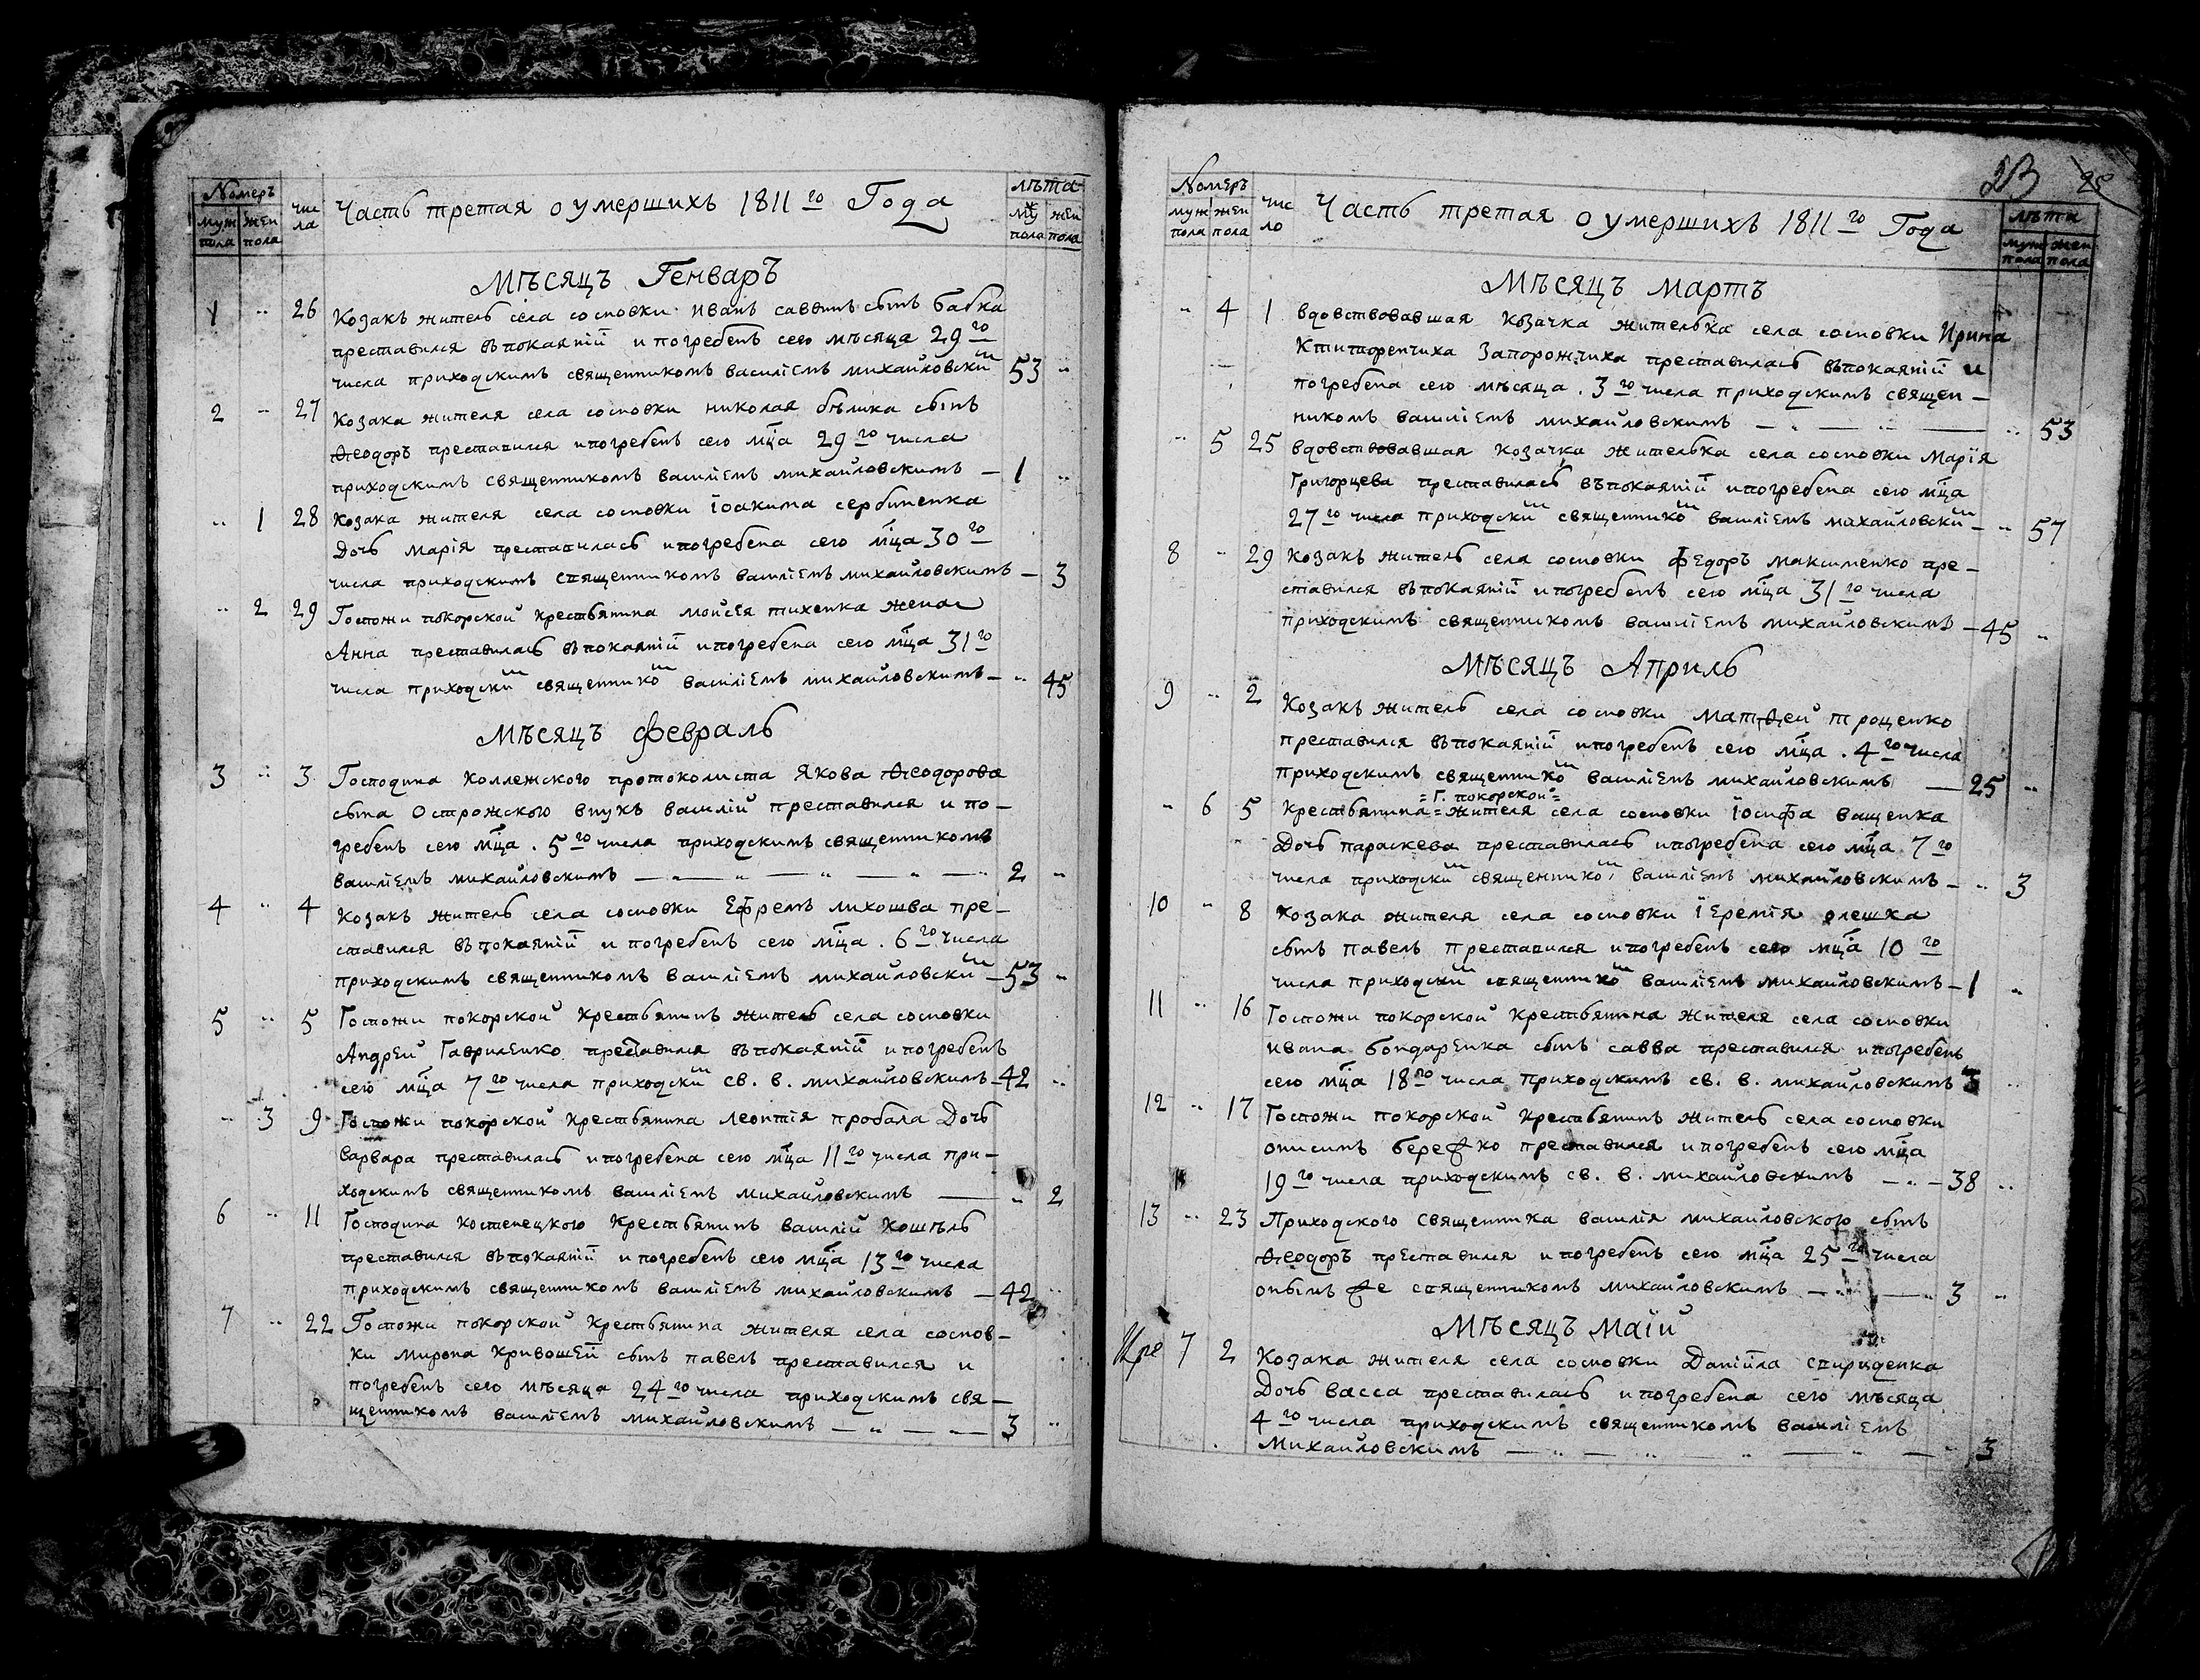 Номеръ
муж пола жен пола
числа
Часть третая о умершихъ 1811го Года
лѣта
му пола жен пола
Мѣсяцъ Генваръ
1 " 26 Козакъ житель села сосновки Иванъ саввинъ сынъ бабка
преставился въ покаянїй и погребенъ сего мѣсяца 29го
числа приходскимъ священникомъ василїемъ михайловским 53 "
2 " 27 Козака жителя села сосновки николая бѣлика сынъ
Ѳеодоръ преставился и погребенъ сего мца 29го числа
приходскимъ священникомъ василїемъ михайловскимъ — 1 "
" 1 28 Козака жителя села сосновки їоакима сербиненка
Дочь марїя преставилась и погребена сего мца 30го
числа приходскимъ священникомъ василїемъ михайловскимъ — 3
" 2 29 Госпожи покорской крестьянина мойсея тихенка жена
Анна преставилась въ покаянїй и погребена сего мца 31го
числа приходским священником василїемъ михайловскимъ — " 45
Мѣсяцъ февраль
3 " 3 Господина Коллежского протоколиста Якова Ѳеодорова
сына Острожского внукъ василїй преставился и по—
гребенъ сего мца. 5го числа приходскимъ священникомъ
василїемъ михайловскимъ — " — " — " — " — " 2 "
4 " 4 Козакъ житель села сосновки Ефремъ лихошва пре—
ставился въ покаянїй и погребенъ сего мца. 6го числа
приходскимъ священникомъ василїемъ михайловским — 53 "
5 " 5 Госпожи покорской крестьянинъ житель села сосновки
Андрей Гавриленко преставился въ покаянїй и погребенъ
сего мца 7го числа приходским св. в. михайловскимъ — 42 "
" 3 9 Госпожи покорской крестьянина леонтїя пробала Дочь
варвара преставилась и погребена сего мца 11го числа при—
ходскимъ священникомъ василїемъ михайловскимъ — " 2
6 " 11 Господина костенецкого крестьянинъ василїй кошѣль
преставился въ покаянїй и погребенъ сего мца 13го числа
приходскимъ священникомъ василїемъ михайловскимъ — 42 "
7 " 22 Госпожи покорской крестьянина жителя села соснов—
ки мирона кривошей сынъ павелъ преставился и
погребенъ сего мѣсяца 24го числа приходскимъ свя—
щенникомъ василїемъ михайловскимъ — " — — 3 "
Номеръ
муж пола жен пола
число
Часть третая о умершихъ 1811го Года
лѣта
муж пола жен пола
Мѣсяцъ мартъ
" 4 1 вдовствовавшая козачка жителька села сосновки Ирина
Ктиторенчиха Запорожчиха преставилась въ покаянїй и
погребена сего мѣсяца. 3го числа приходскимъ священ—
никомъ василїемъ михайловскимъ — " — " — " 53
" 5 25 вдовствовавшая козачка жителька села сосновки марїя
Григорцева преставилась въ покаянїй и погребена сего мца
27го числа приходским священником василїемъ михайловским — " 57
8 " 29 Козакъ житель села сосновки федоръ максименко пре—
ставился въ покаянїй и погребенъ сего мца 31го числа
приходскимъ священникомъ василїемъ михайловскимъ — 45 "
Мѣсяцъ Априль
9 " 2 Козакъ житель села сосновки матѳей троценко
преставился въ покаянїй и погребенъ сего мца. 4го числа
приходскимъ священником василїемъ михайловскимъ — 25 "
= Г. покорской =
" 6 5 Крестьянина = жителя села сосновки їосифа ващенка
Дочь параскева преставилась и погребена сего мца 7го
числа приходским священником василїемъ михайловскимъ — " 3
10 " 8 Козака жителя села сосновки їеремїя олешка
сынъ павелъ преставился и погребенъ сего мца 10го
числа приходским священником василїемъ михайловскимъ — 1 "
11 " 16 Госпожи покорской крестьянина жителя села сосновки
ивана бондаренка сынъ савва преставился и погребенъ
сего мца 18го числа приходскимъ св. в. михайловскимъ 3 "
12 " 17 Госпожи покорской крестьянинъ житель села сосновки
онисимъ бережко преставился и погребенъ сего мца
19го числа приходскимъ св. в. михайловскимъ — " — 38 "
13 " 23 Приходского священника василїя михайловского сынъ
Ѳеодоръ преставился и погребенъ сего мца 25го числа
онымъ же священникомъ михайловскимъ — " — " 3 "
Мѣсяцъ маїй
7 2 Козака жителя села сосновки Данїила спириденка
Дочь васса преставилась и погребена сего мѣсяца
4го числа приходскимъ священникомъ василїемъ
михайловскимъ — " — " — " — " — " 3